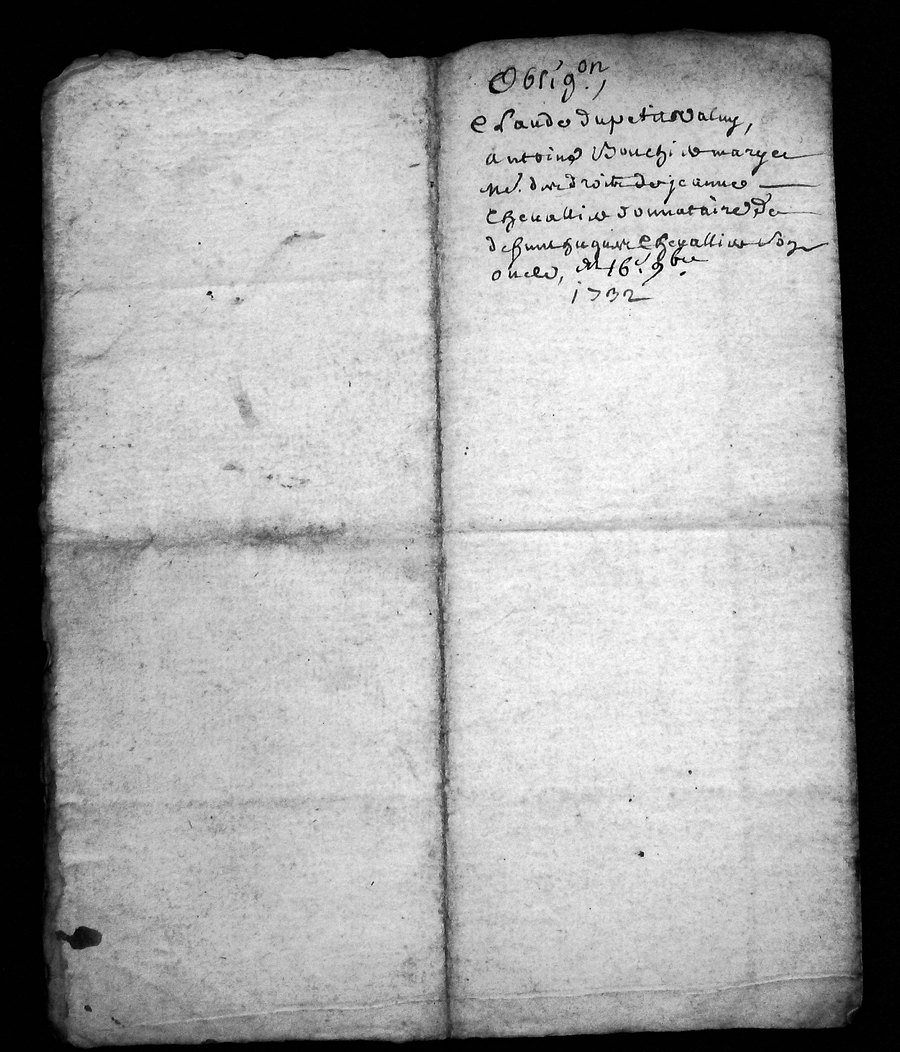 Oblig.on,
Claude dupetitvaluy,
antoine Bouchie marye
de droit de jeanne
Chevallie donnataire de
defunt hugue Chevallie son
oncle, du 16.e 9bre
1732